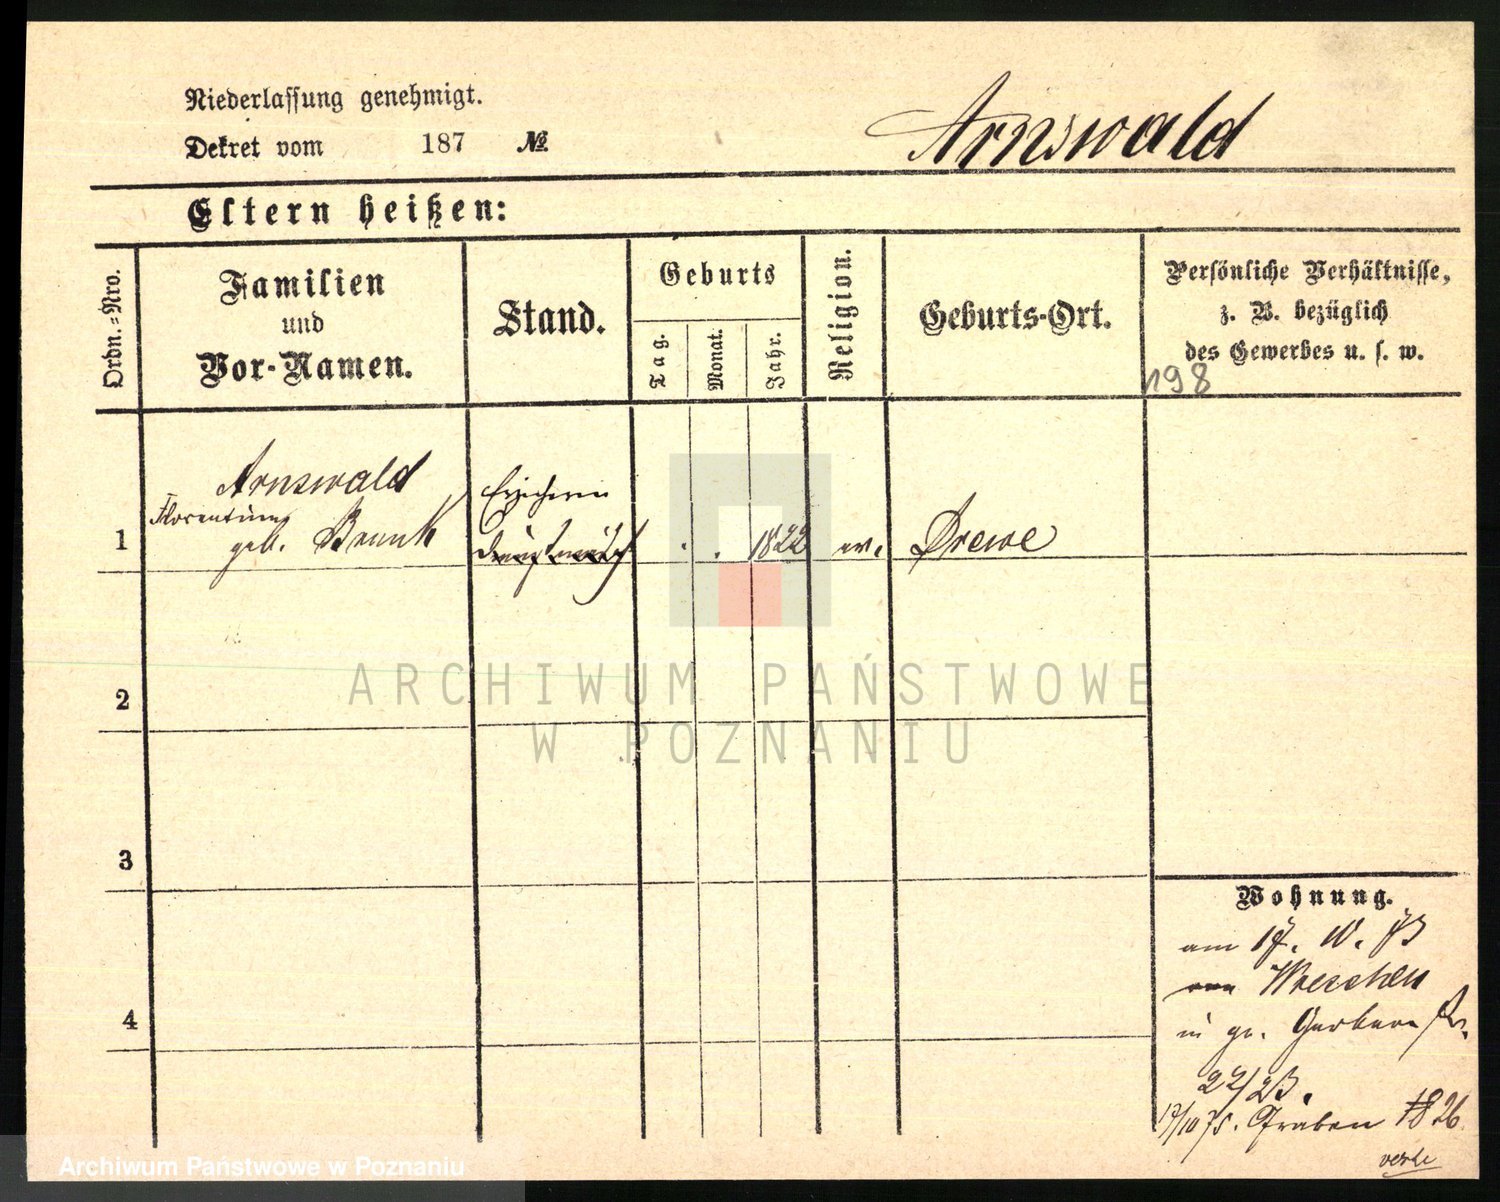 Niederlassung genehmigt.
Dekret vom 187 №
Arnswald
Eltern heißen:
Ordn.=Nro.
Familien
und
Vor-Namen.
Stand.
Geburts
Tag.
Monat.
Jahr.
Religion.
Geburts-Ort.
Persönliche Verhältnisse,
z. B. bezüglich
des Gewerbes u. s. w.
198
Arnswald
Florentine
geb.
1
1822
ev.
Drewe
2
3
4
Wohnung.
am 17. 10. 73
von Wreschen
in gr. Gerberstr.
22/23.
17/10 75. Graben
26
verte
ARCHIWUM PAŃSTWOWE
W POZNANIU
Archiwum Państwowe w Poznaniu